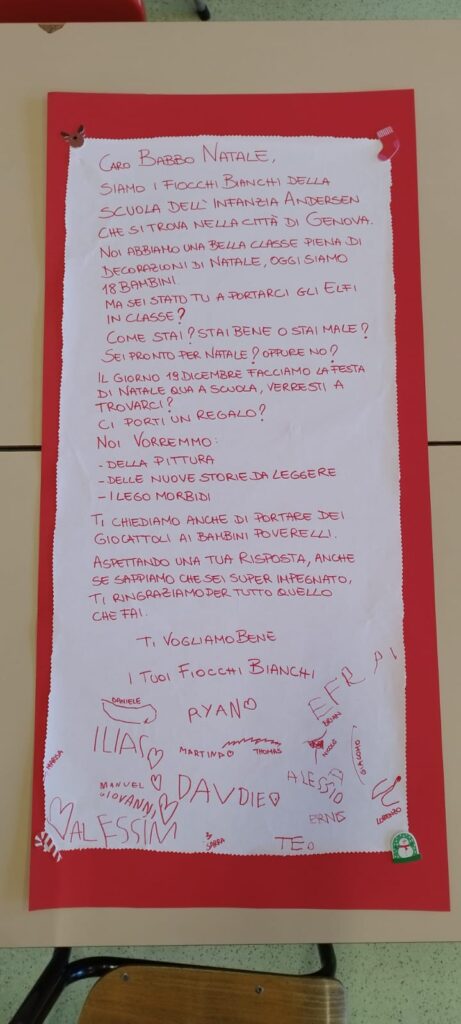 CARO BABBO NATALE,
SIAMO I FIOCCHI BIANCHI DELLA
SCUOLA DELL'INFANZIA ANDERSEN
CHE SI TROVA NELLA CITTÀ DI GENOVA.
NOI ABBIAMO UNA BELLA CLASSE PIENA DI
DECORAZIONI DI NATALE, OGGI SIAMO
18 BAMBINI.
MA SEI STATO TU A PORTARCI GLI ELFI
IN CLASSE?
COME STAI? STAI BENE O STAI MALE?
SEI PRONTO PER NATALE? OPPURE NO?
IL GIORNO 19 DICEMBRE FACCIAMO LA FESTA
DI NATALE QUA A SCUOLA, VERRESTI A
TROVARCI?
CI PORTI UN REGALO?
NOI VORREMMO:
- DELLA PITTURA
- DELLE NUOVE STORIE DA LEGGERE
- I LEGO MORBIDI
TI CHIEDIAMO ANCHE DI PORTARE DEI
GIOCATTOLI AI BAMBINI POVERELLI.
ASPETTANDO UNA TUA RISPOSTA, ANCHE
SE SAPPIAMO CHE SEI SUPER IMPEGNATO,
TI RINGRAZIAMO PER TUTTO QUELLO
CHE FAI.
TI VOGLIAMO BENE
I TUOI FIOCCHI BIANCHI
DANIELE
RYAN
EFRAI
BRIAN
ILIAS
MARTINA
THOMAS
NICOLÒ
GIACOMO
MANUEL
GIOVANNI
DAVDIE
ALESSIO
LORENZO
ERNIS
ALESSIM
SARRA
TEO